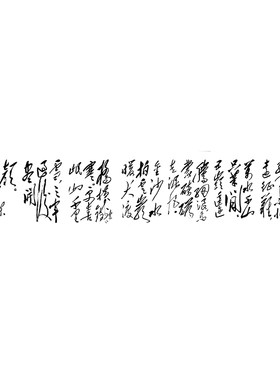 遠征難
万水千山
只等閒
五嶺逶迤
騰細浪烏
蒙磅礴
走泥丸
金沙水
拍雲崖
暖大渡
橋橫鐵索
寒更喜
岷山千里
雪三軍
過後
盡開
顏。